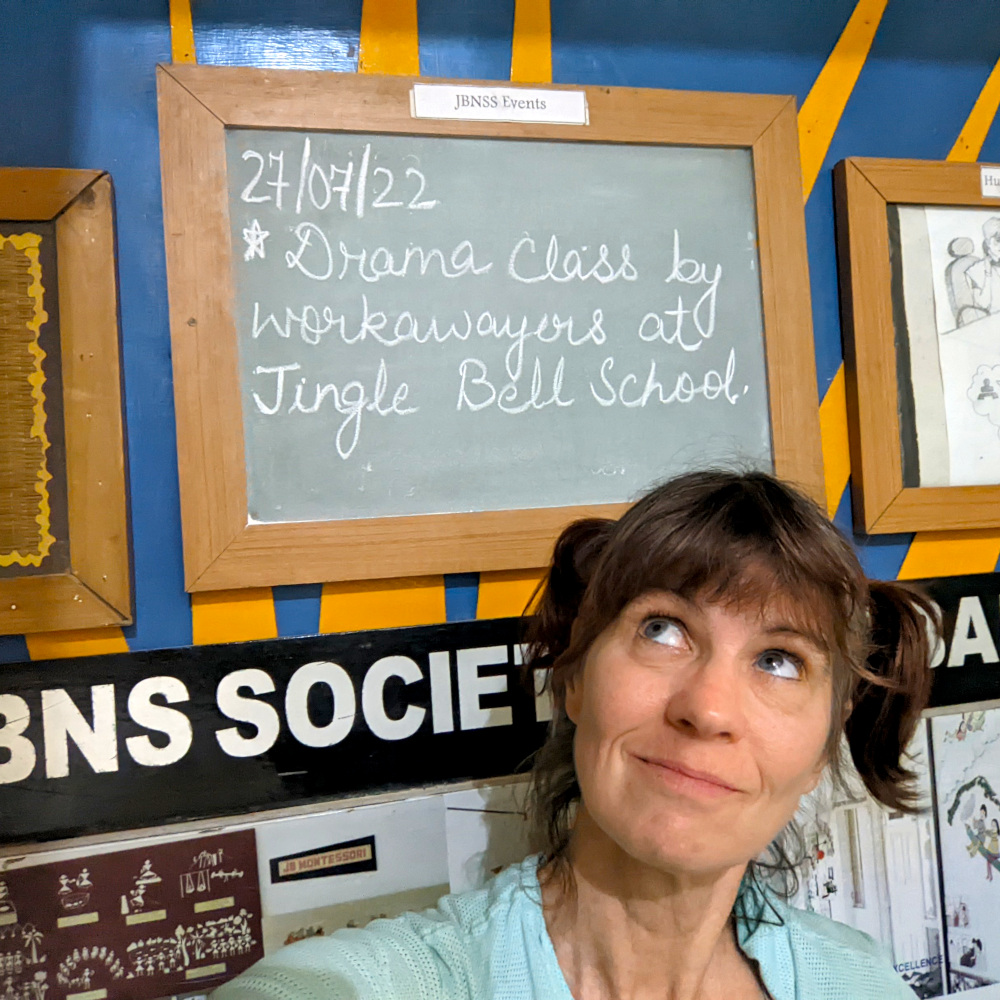 JBNSS Events
27/07/22
Drama Class by
workawayers at
Jingle Bell School.
Hu
BNS SOCIET
DA
JB MONTESSORI
XCELLENCE